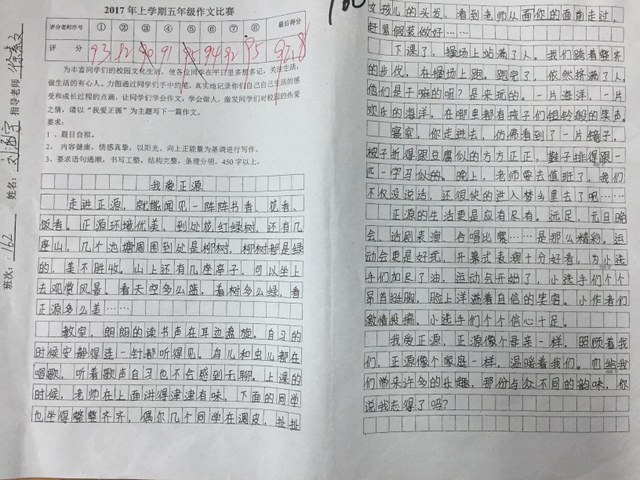 2017年上学期五年级作文比赛
评分老师序号 ① ② ③ ④ ⑤ ⑥ ⑦ ⑧ 最后得分
评 分 93 92 90 91 94 92 95
为丰富同学们的校园文化生活，使各位同学在平日里多想多记，关注生活，
做生活的有心人，力图通过同学们手中的笔，真实地记录你们自己自己生活的感
受和成长过程的点滴，让同学们学会作文，学会做人，激发同学们对校园的热爱
之情，请以“我爱正源”为主题写下一篇作文。
要求：
1、题目自拟。
2、内容健康，情感真挚，以阳光，向上正能量为基调进行写作。
3、要求语句通顺，书写工整，结构完整，条理分明，450字以上。
班次：162
姓名：
指导老师
我爱正源
走进正源，就能闻见一阵阵书香，花香、
饭香。正源环境优美，到处花红绿树，还有几
座山，几个池塘周围到处是柳树，柳树都是绿
的，美不胜收，山上还有几座亭子，可以坐上
去观赏风景。看天空多么蓝，看树多么绿，看
正源多么美……
教室，朗朗的读书声在耳边盘旋。自习的
时候安静得连一针都听得见。鸟儿和虫儿都在
唱歌，听着歌声自习也不会感到无聊。上课的
时候，老师在上面讲得津津有味，下面的同学
也坐得整整齐齐，偶尔几个同学在调皮，扯扯
女孩儿的头发，看到老师从面你的面前走过，
赶紧假装做好……
下课了，操场上站满了人。我们踏着整齐
的步伐，在操场上跑。跑完了，依然挤满了人，
他们是干嘛的呢？是来玩的，一片海洋，一片
欢乐的海洋，在哪里都有孩子们银铃般的笑声。
寝室，你走进去，仿佛看到了一片镜子，
被子折得跟豆腐似的方方正正，鞋子排得跟一
匹一字刀似的。晚上，老师带去值班了，我们
不仅没说话，还很快的进入梦乡里去了吧……
正源的生活更是应有尽有。远足，元旦晚
会，话剧表演，合唱比赛……是那么精彩。运
动会更是好玩，开幕式表理十分好看，为小选
手们加尽了油，运动员开始了，小选手们个个
昂首挺胸，脸上洋溢着自信的笑容。小作者们
激情投稿。小选手们个个信心十足。
我爱正源，正源像个母亲一样，照顾着我
们，正源像个家庭一样，温暖着我们。也给我
们带来许多的乐趣，那份与众不同的韵味，你
说我忘得了吗？